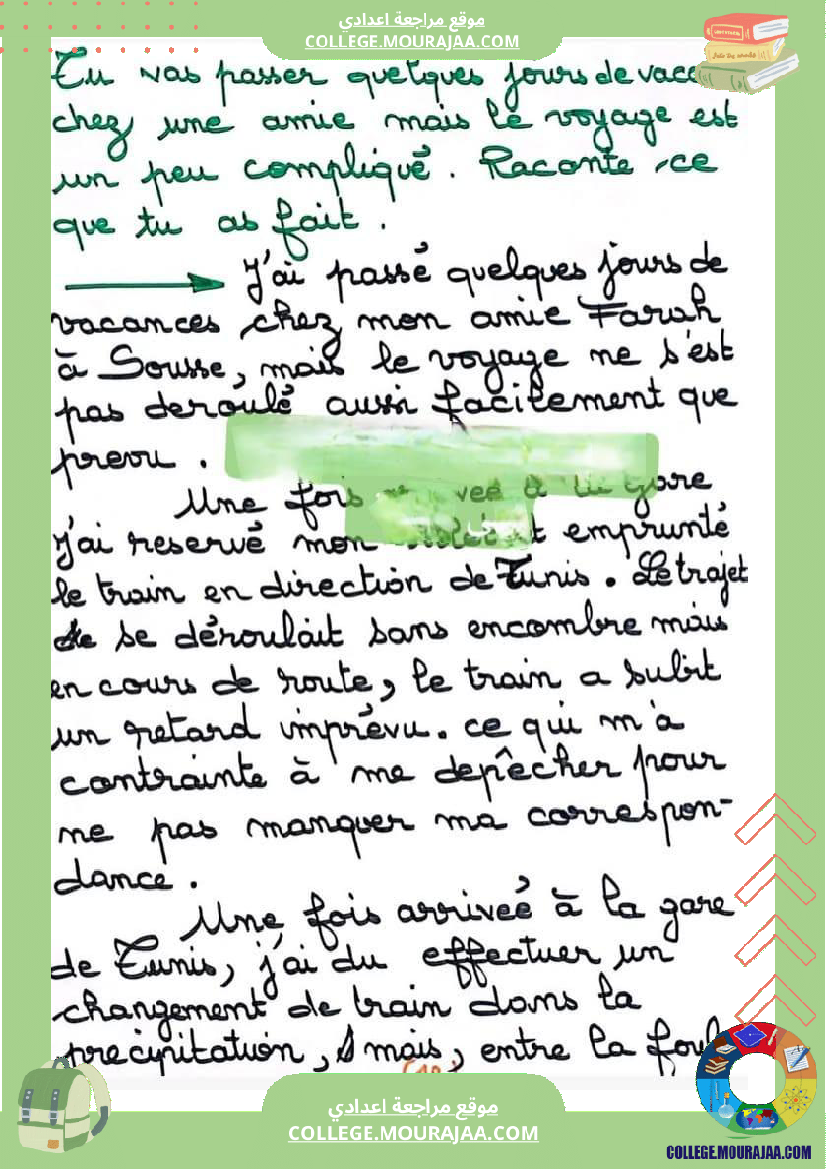 موقع مراجعة اعدادي
COLLEGE.MOURAJAA.COM
Tu vas passer quelques jours de vacc
chez une amie mais le voyage est
un peu compliqué. Raconte ce
que tu as fait.
J'ai passé quelques jours de
vacances chez mon amie Farah
à Sousse, mais le voyage ne s'est
pas deroulé aussi facilement que
prevu.
Une fois à gare
J'ai reservé mon emprunté
le train en direction de Tunis. Le trajet
se déroulait sans encombre mais
en cours de route, le train a subit
un retard imprévu. ce qui m'a
contrainte à me depêcher pour
ne pas manquer ma correspon-
dance.
Une fois arriveé à la gare
de Tunis, j'ai du effectuer un
changement de train dans la
precipitation, mais, entre la
موقع مراجعة اعدادي
COLLEGE.MOURAJAA.COM
COLLEGE.MOURAJAA.COM